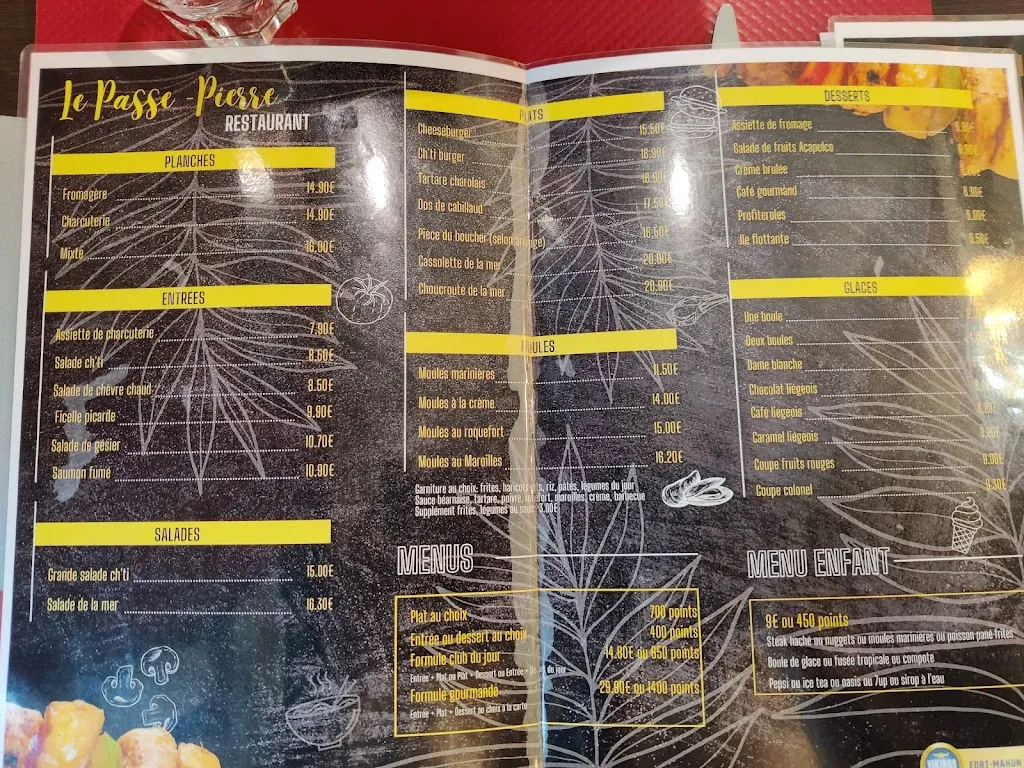 Le Passe-Pierre
RESTAURANT
PLANCHES
Fromagère 14.90€
Charcuterie 14.90€
Mixte 16.90€
ENTREES
Assiette de charcuterie 7.90€
Salade ch'ti 8.50€
Salade de chèvre chaud 8.50€
Ficelle picarde 9.90€
Salade de gésier 10.70€
Saumon fumé 10.90€
SALADES
Grande salade ch'ti 15.00€
Salade de la mer 16.30€
PLATS
Cheeseburger 15.50€
Ch'ti burger 16.90€
Tartare charolais 16.90€
Dos de cabillaud 17.50€
Pièce du boucher (selon 18.50€
Cassolette de la mer 20.00€
Choucroute de la mer 20.90€
MOULES
Moules marinières 11.50€
Moules à la crème 14.00€
Moules au roquefort 15.00€
Moules au Maroilles 16.20€
Garniture au choix: frites, haricots verts, riz, pâtes, légumes du jour
Sauce béarnaise, tartare, poivre, roquefort, maroilles, crème, barbecue
Supplément frites, légumes ou sauce 3.00€
MENUS
Plat au choix 700 points
Entrée ou dessert au choix 400 points
Formule club du jour 14.80€ ou 850 points
Entrée + Plat ou Plat + Dessert ou Entrée + du jour
Formule gourmande 29.90€ ou 1400 points
Entrée + Plat + Dessert au choix à la carte
DESSERTS
Assiette de fromage
Salade de fruits Acapulco
Crème brulée
Café gourmand 8.90€
Profiteroles 9.00€
Ile flottante 9.50€
GLACES
Une boule
Deux boules
Dame blanche
Chocolat liégeois
Café liégeois 8.20€
Caramel liégeois 8.20€
Coupe fruits rouges 9.00€
Coupe colonel 9.30€
MENU ENFANT
9€ ou 450 points
Steak haché ou nuggets ou moules marinières ou poisson pané frites
Boule de glace ou fusée tropicale ou compote
Pepsi ou ice tea ou oasis ou 7up ou sirop à l'eau
VIKINGS
FORT-MAHON